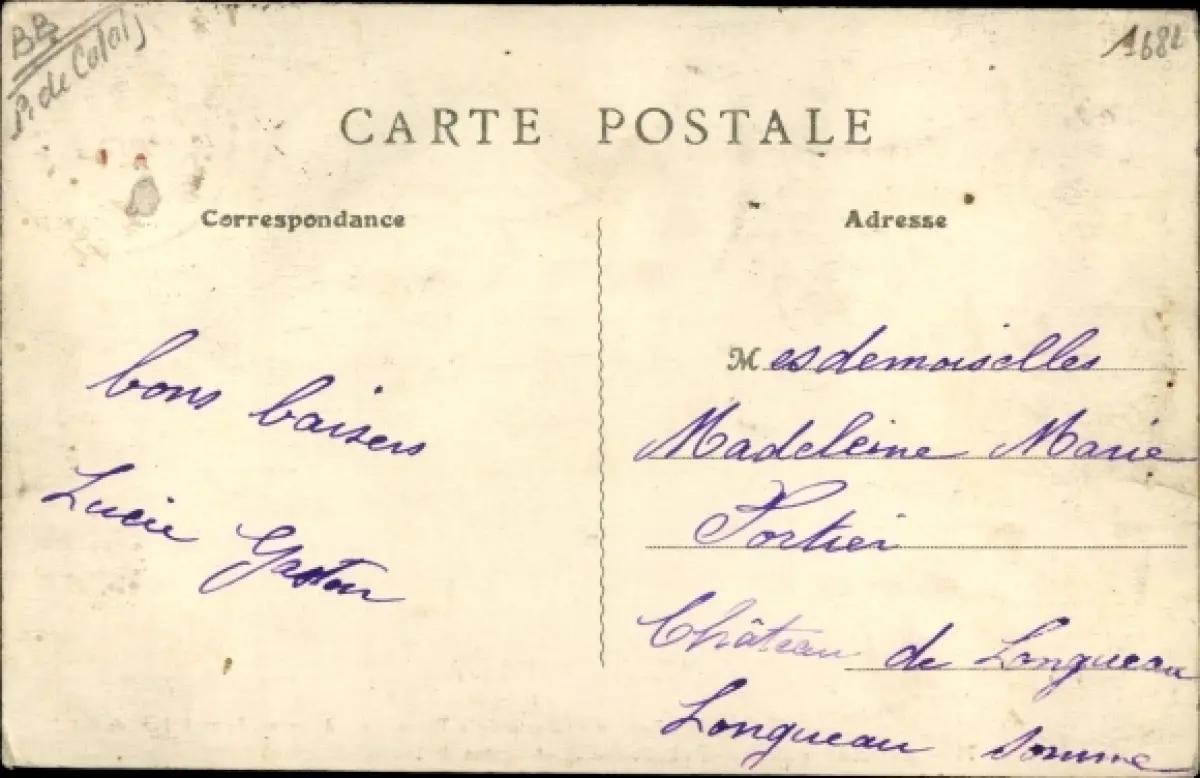 BB2
P. de Calais
1682
CARTE POSTALE
Correspondance
Adresse
bons baisers
Lucie Gaston
Mesdemoiselles
Madeleine Marie
Portier
Château de Longueau
Longueau Somme